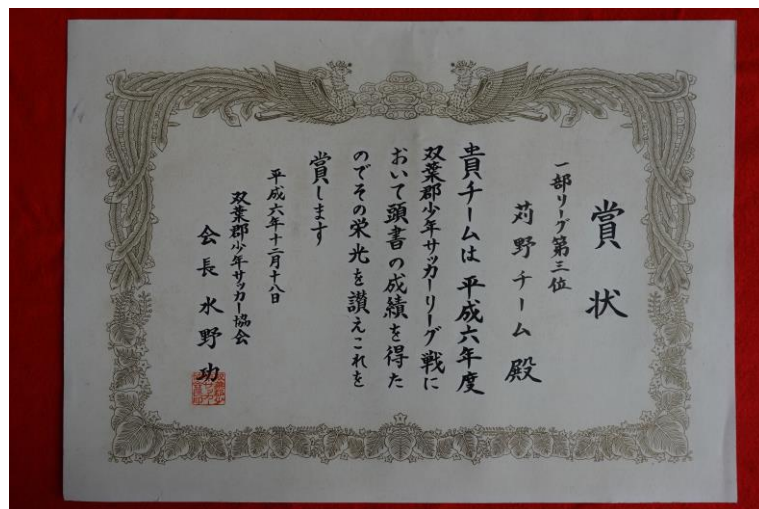 賞状
一部リーグ第三位
苅野チーム殿
貴チームは平成六年度
双葉郡少年サッカーリーグ戦に
おいて頭書の成績を得た
のでその栄光を讃えこれを
賞します
平成六年十二月十八日
双葉郡少年サッカー協会
会長水野功